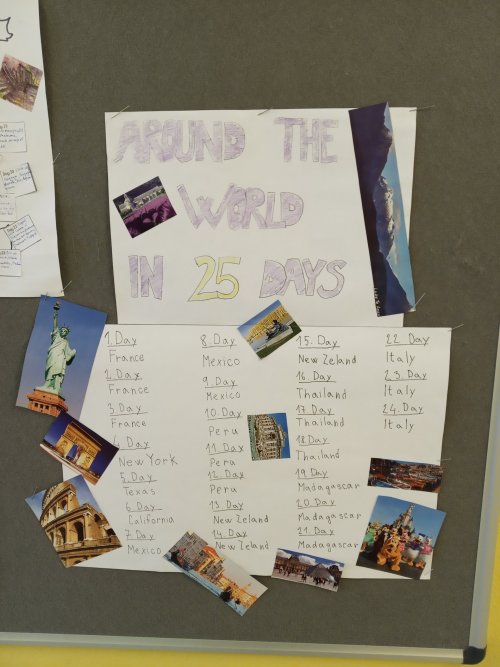 AROUND THE
WORLD
IN 25 DAYS
1. Day
France
2. Day
France
3. Day
France
4. Day
New York
5. Day
Texas
6. Day
California
7. Day
Mexico
8. Day
Mexico
9. Day
Mexico
10. Day
Peru
11. Day
Peru
12. Day
Peru
13. Day
New Zeland
14. Day
New Zeland
15. Day
New Zeland
16. Day
Thailand
17. Day
Thailand
18. Day
Thailand
19. Day
Madagascar
20. Day
Madagascar
21. Day
Madagascar
22. Day
Italy
23. Day
Italy
24. Day
Italy